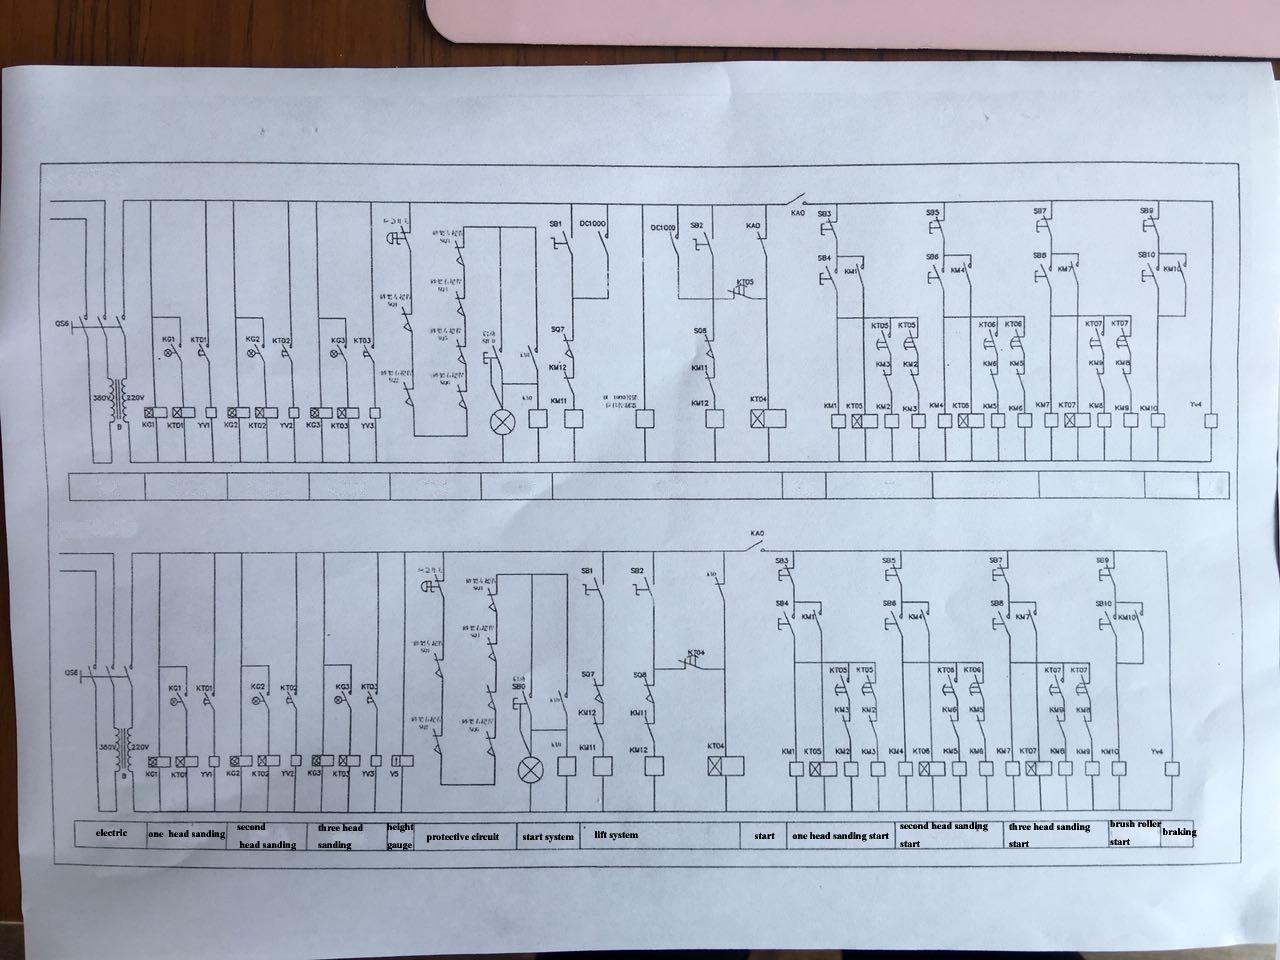 KA0
SB1
DC1000
DC1000
SB2
KA0
SB3
SB5
SB7
SB9
SB4
KM1
SB6
KM4
SB8
KM7
SB10
KM10
KT05
QS6
KG1
KT01
KG2
KT02
KG3
KT03
SQ7
SQ8
KM12
KM11
KT05
KT05
KT06
KT06
KT07
KT07
KM3
KM2
KM6
KM5
KM9
KM8
380V
220V
B
KG1
KT01
YV1
KG2
KT02
YV2
KG3
KT03
YV3
KM11
KM12
KT04
KM1
KT05
KM2
KM3
KM4
KT06
KM5
KM6
KM7
KT07
KM8
KM9
KM10
Yv4
KA0
SB1
SB2
SB3
SB5
SB7
SB9
SB4
KM1
SB6
KM4
SB8
KM7
SB10
KM10
KT04
QS6
KG1
KT01
KG2
KT02
KG3
KT03
SB0
SQ7
SQ8
KM12
KM11
KT05
KT05
KT06
KT06
KT07
KT07
KM3
KM2
KM6
KM5
KM9
KM8
380V
220V
B
KG1
KT01
YV1
KG2
KT02
YV2
KG3
KT03
YV3
Y5
KM11
KM12
KT04
KM1
KT05
KM2
KM3
KM4
KT06
KM5
KM6
KM7
KT07
KM8
KM9
KM10
Yv4
electric
one head sanding
second
head sanding
three head
sanding
height
gauge
protective circuit
start system
lift system
start
one head sanding start
second head sanding
start
three head sanding
start
brush roller
start
braking